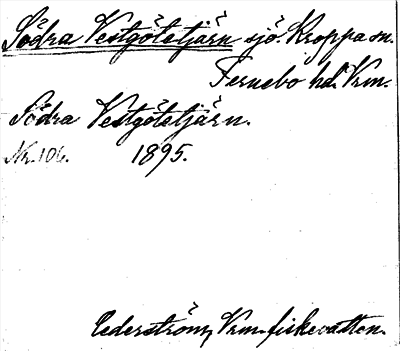 Södra Vestgötetjärn sjö. Kroppa sn.
Fernebo hd. Vrm.
Södra Vestgötetjärn.
Nr. 106. 1895.
Cederström, Vrm. fiskevatten.